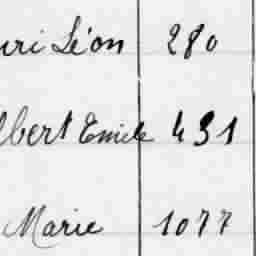 uri Léon 280
lbert Emile 431
Marie 1077